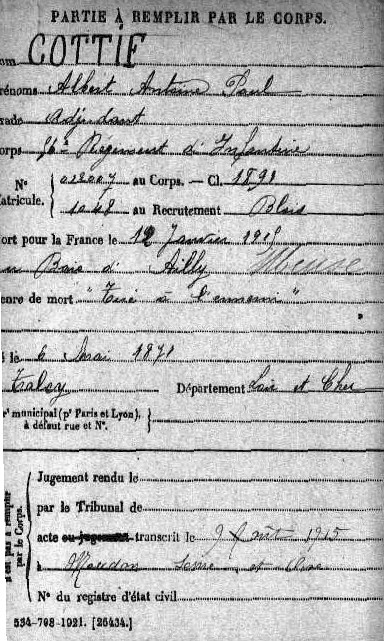 PARTIE À REMPLIR PAR LE CORPS.
om COTTIF
rénoms Albert Antoine Paul
rade Adjudant
orps Régiment d'Infanterie
N° 022007 au Corps. — Cl. 1891
atricule. 1048 au Recrutement Blois
ort pour la France le 12 Janvier 1915
Bois d'Ailly Meuse
enre de mort "Tué à l'ennemi"
é le 6 Mai 1871
Talcy Département Loir et Cher
r' municipal (pr Paris et Lyon),
à défaut rue et N°.
n'est pas à remplir
par le Corps.
Jugement rendu le
par le Tribunal de
acte ou jugement transcrit le 9 Août 1915
à Meudon Seine et Oise
N° du registre d'état civil
534-708-1921. [26434.]